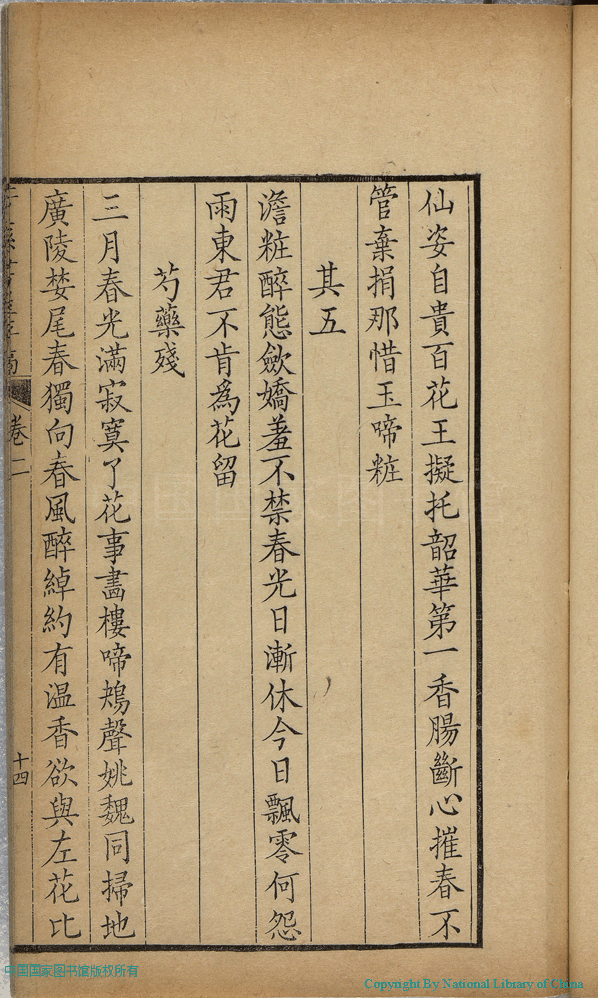 仙姿自貴百花王擬托韶華第一香腸斷心摧春不
管棄捐那惜玉啼粧
其五
澹粧醉態歛嬌羞不禁春光日漸休今日飄零何怨
雨東君不肯爲花留
芍藥殘
三月春光滿寂寞了花事畵樓啼鴂聲姚魏同掃地
廣陵婪尾春獨向春風醉綽約有温香欲與左花比
卷二
十四
中国国家图书馆版权所有
Copyright By National Library of China